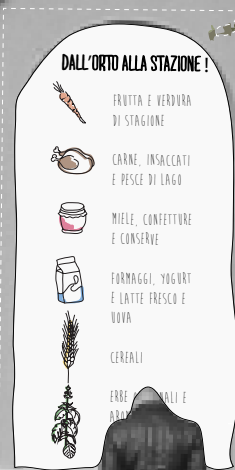 DALL'ORTO ALLA STAZIONE !
FRUTTA E VERDURA
DI STAGIONE
CARNE, INSACCATI
E PESCE DI LAGO
MIELE, CONFETTURE
E CONSERVE
FORMAGGI, YOGURT
E LATTE FRESCO E
UOVA
CEREALI
ERBE E